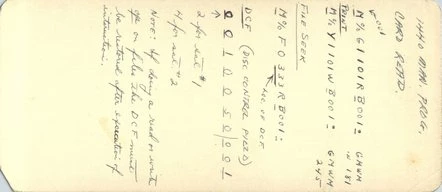 1440 MAN. PROG.
CARD READ.
M % G 1 1 0 1 R B 0 0 1 = GMWM IN 181
PRINT
M % Y 1 1 0 1 W B 0 0 1 = GMWM 245
FILE SEEK
M % F 0 333 R B 0 0 1 =
LOC OF DCF
DCF (DISC CONTROL FIELD)
0 0 1 0 0 0 0 0 0 1
2 for set #1
4 for set #2
NOTE: If doing a read or write
op on files the DCF must
be restored after execution of
instruction.